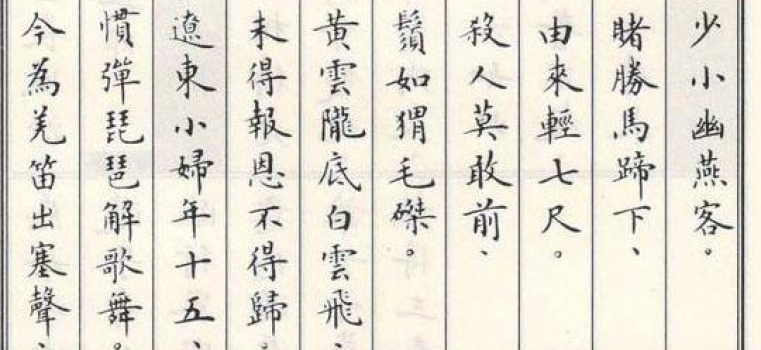 少小幽燕客。
賭勝馬蹄下、
由來輕七尺。
殺人莫敢前、
鬚如猬毛磔。
黃雲隴底白雲飛、
未得報恩不得歸。
遼東小婦年十五、
慣彈琵琶解歌舞。
今為羌笛出塞聲、